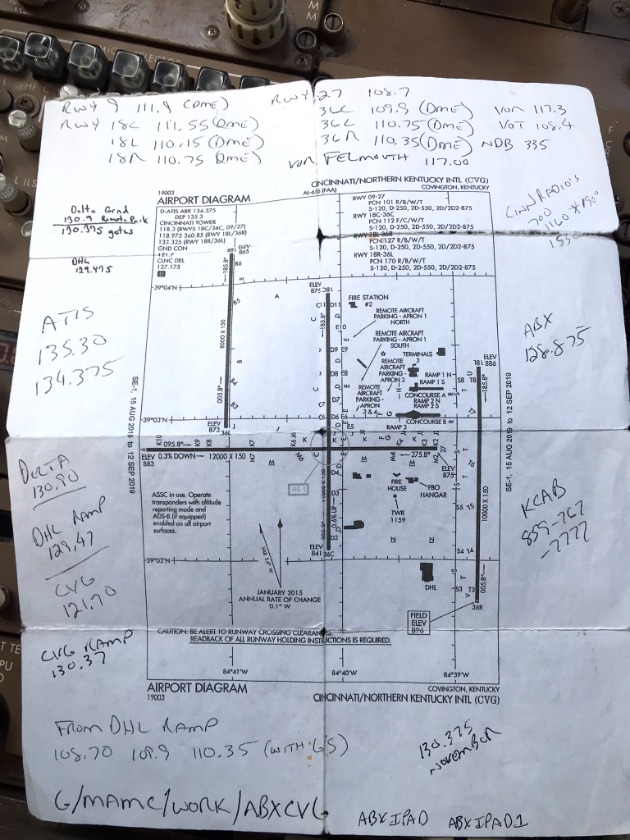 RWY 9 111.9 (DME)
RWY 18C 111.55 (DME)
18L 110.15 (DME)
18R 110.75 DME)
RWY 27 108.7
36C 109.9 (DME)
36L 110.75 (DME)
36R 110.35 (DME)
VOR 117.3
VOT 108.4
NDB 335
VOR FELMOUTH 117.00
CINCINNATI/NORTHERN KENTUCKY INTL (CVG)
COVINGTON, KENTUCKY
19003
AIRPORT DIAGRAM
AL-655 (FAA)
D-ATIS ARR 134.375
DEP 135.3
CINCINNATI TOWER
118.3 (RWYS 18C/36C, 09/27)
118.975 360.85 (RWY 18L/36R)
133.325 (RWY 18R/36L)
GND CON
121.7
CLNC DEL
127.175
RWY 09-27
PCN 101 R/B/W/T
S-120, D-250, 2S-550, 2D/2D2-875
RWY 18C-36C
PCN 112 F/C/W/T
S-120, D-250, 2D-550, 2D/2D2-875
RWY 18L-36R
PCN 127 R/B/W/T
S-120, D-250, 2D-550, 2D/2D2-875
RWY 18R-36L
PCN 170 R/B/W/T
S-120, D-250, 2D-550, 2D/2D2-875
Delta Grnd
130.9 Remote Park
130.375 gates
DHL
129.475
ATIS
135.30
134.375
DELTA
130.90
DHL RAMP
129.47
CVG
121.70
CVG RAMP
130.37
ABX
128.875
KCAB
859-767
-7777
39°04'N
39°03'N
39°02'N
ELEV
865
ELEV
875
FIRE STATION
#2
REMOTE AIRCRAFT
PARKING - APRON 1
NORTH
REMOTE AIRCRAFT
PARKING - APRON 1
SOUTH
TERMINALS
3
REMOTE
AIRCRAFT
PARKING -
APRON 2
RAMP 1 N
RAMP 1 S
CONCOURSE A
RAMP 2 N
RAMP 2 S
CONCOURSE B
REMOTE
AIRCRAFT
PARKING -
APRON
3 & 4
RAMP 3
ELEV
886
8000 X 150
ELEV
873
36L
095.8°
ELEV
883
0.3% DOWN
12000 X 150
275.8°
27
ELEV
875
HS 1
FIRE
HOUSE
FBO
HANGAR
TWR
1159
10000 X 150
ELEV
841
36C
DHL
36R
FIELD
ELEV
896
ASSC in use. Operate
transponders with altitude
reporting mode and
ADS-B (if equipped)
enabled on all airport
surfaces.
JANUARY 2015
ANNUAL RATE OF CHANGE
0.1° W
SE-1, 15 AUG 2019 to 12 SEP 2019
SE-1, 15 AUG 2019 to 12 SEP 2019
CAUTION: BE ALERT TO RUNWAY CROSSING CLEARANCES.
READBACK OF ALL RUNWAY HOLDING INSTRUCTIONS IS REQUIRED.
84°41'W
84°40'W
84°39'W
AIRPORT DIAGRAM
19003
COVINGTON, KENTUCKY
CINCINNATI/NORTHERN KENTUCKY INTL (CVG)
FROM DHL RAMP
108.70 109.9 110.35 (WITH GS)
130.375
NOVEMBER
G/MAMC/WORK/ABXCVG
ABXIPAD ABXIPAD1